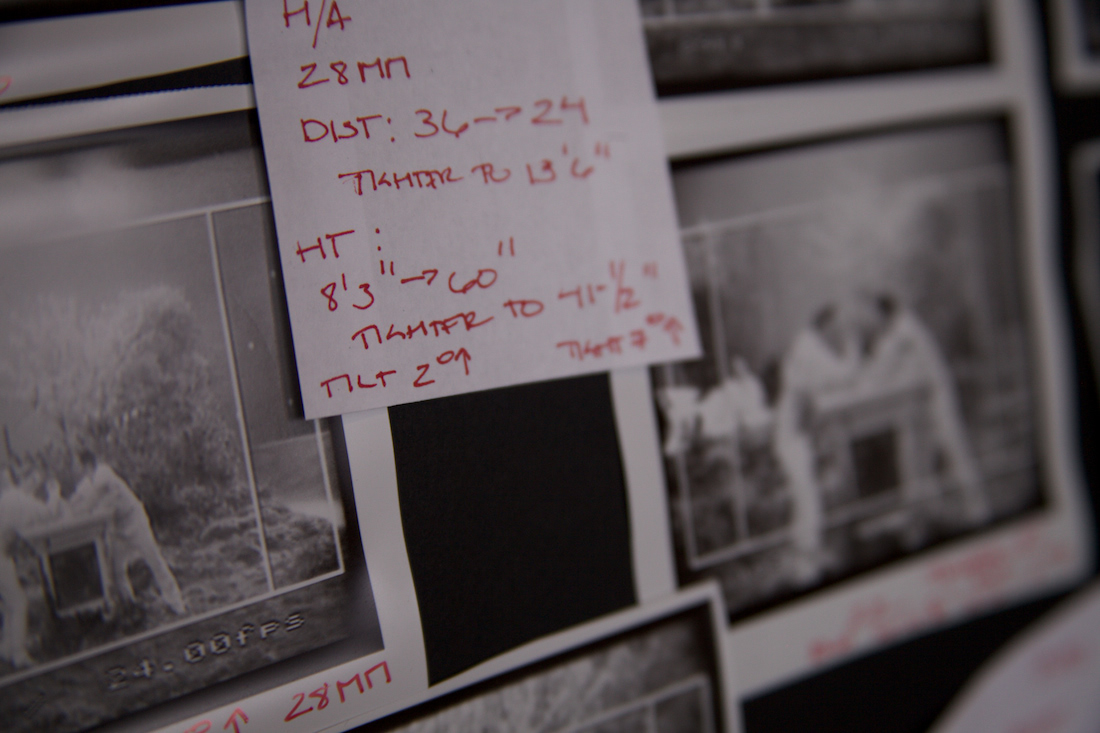 H/A
28MM
DIST: 36→24
TIGHTER TO 13'6"
HT:
8'3"→60"
TIGHTER TO 41-1/2"
TILT 2°↑ TIGHT 7°↑
24.00fps
↑ 28MM